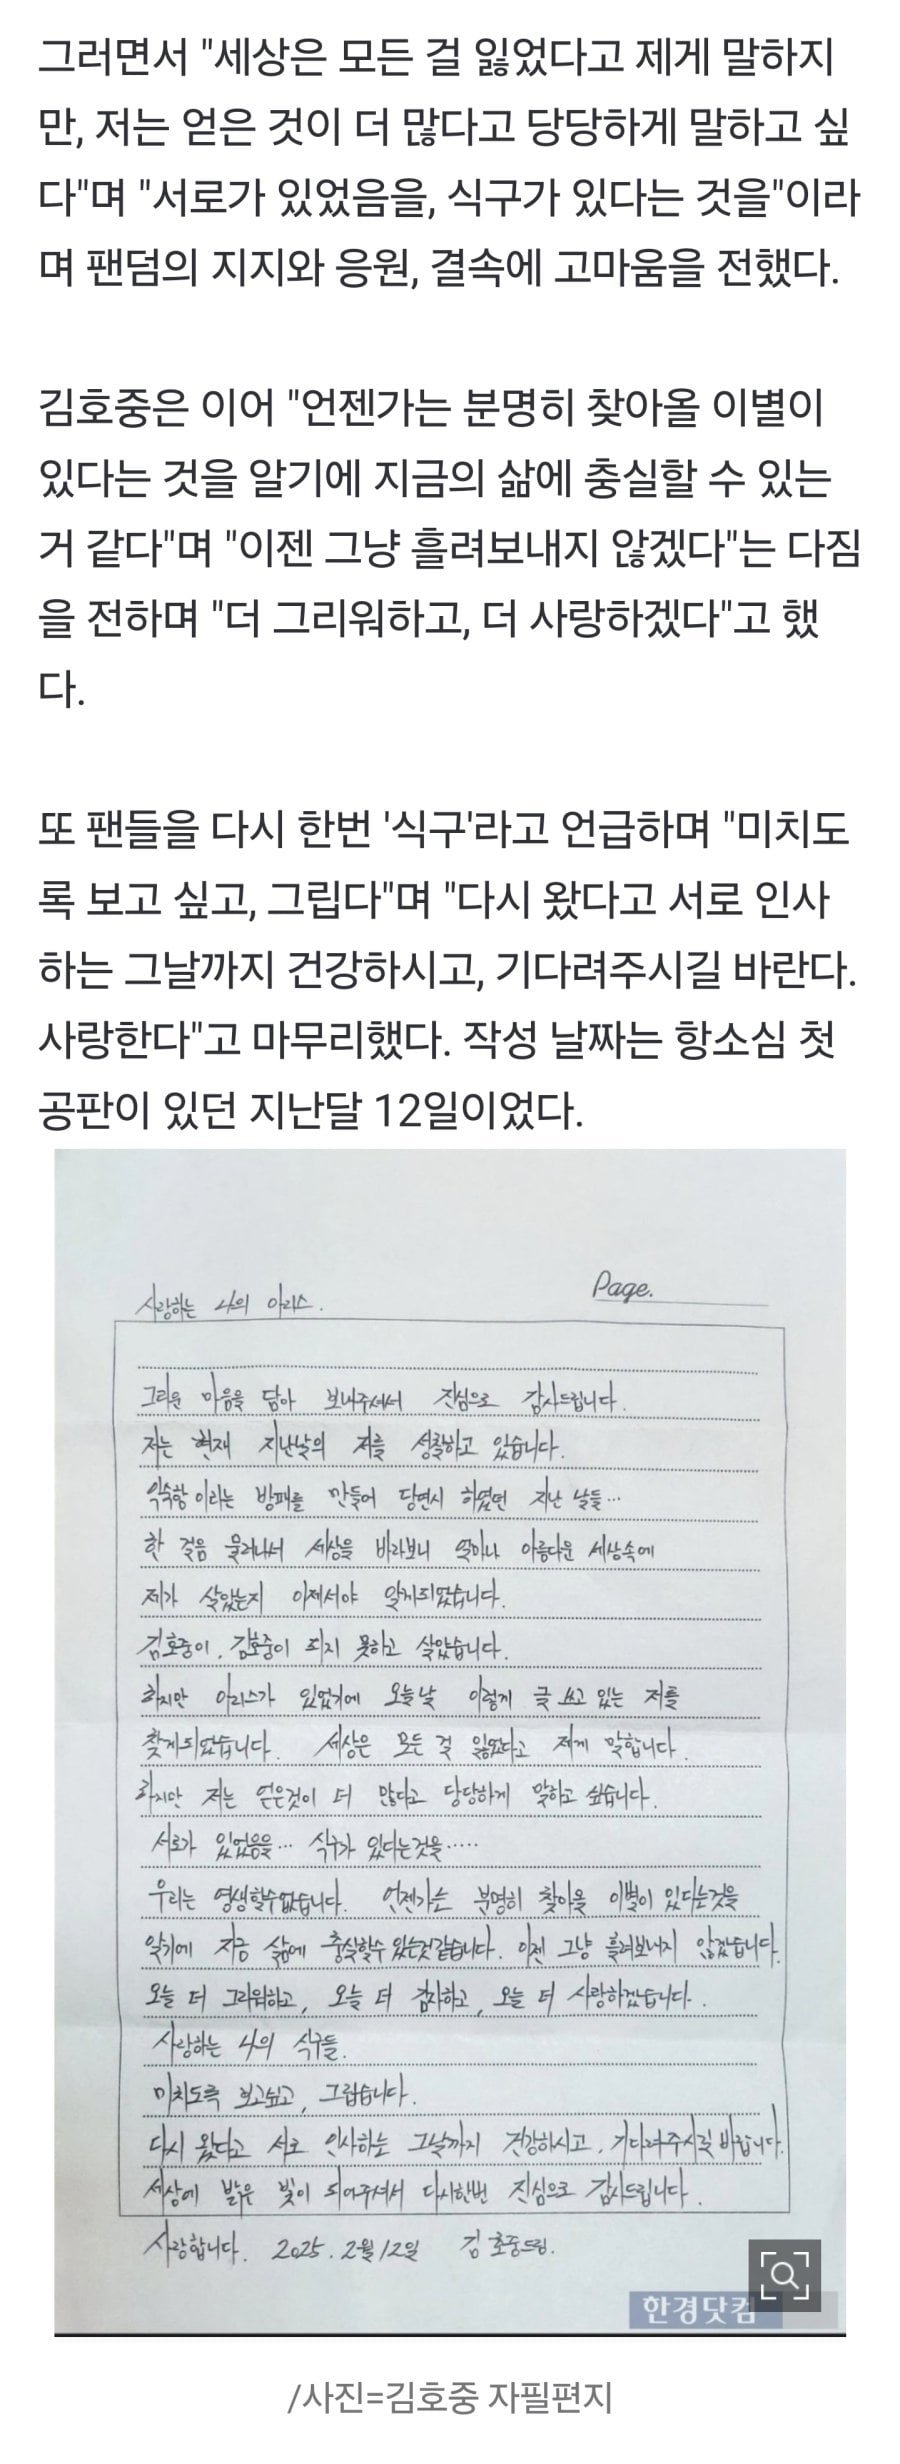 그러면서 "세상은 모든 걸 잃었다고 제게 말하지
만, 저는 얻은 것이 더 많다고 당당하게 말하고 싶
다"며 "서로가 있었음을, 식구가 있다는 것을"이라
며 팬덤의 지지와 응원, 결속에 고마움을 전했다.
김호중은 이어 "언젠가는 분명히 찾아올 이별이
있다는 것을 알기에 지금의 삶에 충실할 수 있는
거 같다"며 "이젠 그냥 흘려보내지 않겠다"는 다짐
을 전하며 "더 그리워하고, 더 사랑하겠다"고 했
다.
또 팬들을 다시 한번 '식구'라고 언급하며 "미치도
록 보고 싶고, 그립다"며 "다시 왔다고 서로 인사
하는 그날까지 건강하시고, 기다려주시길 바란다.
사랑한다"고 마무리했다. 작성 날짜는 항소심 첫
공판이 있던 지난달 12일이었다.
Page.
사랑하는 나의 아리스.
그리운 마음을 담아 보내주셔서 진심으로 감사드립니다.
저는 현재 지난날의 저를 성찰하고 있습니다.
익숙함 이라는 방패를 만들어 당연시 하였던 지난 날들...
한 걸음 물러나서 세상을 바라보니 얼마나 아름다운 세상속에
제가 살았는지 이제서야 알게되었습니다.
김호중이, 김호중이 되지 못하고 살았습니다.
하지만 아리스가 있었기에 오늘날 이렇게 글 쓰고 있는 저를
찾게되었습니다. 세상은 모든 걸 잃었다고 저게 말합니다.
하지만 저는 얻은것이 더 많다고 당당하게 말하고 싶습니다.
서로가 있었음을... 식구가 있다는것을.....
우리는 영생할수없습니다. 언젠가는 분명히 찾아올 이별이 있다는것을
알기에 지금 삶에 충실할수 있는것같습니다. 이젠 그냥 흘려보내지 않겠습니다.
오늘 더 그리워하고, 오늘 더 감사하고, 오늘 더 사랑하겠습니다.
사랑하는 나의 식구들.
미치도록 보고싶고, 그립습니다.
다시 왔다고 서로 인사하는 그날까지 건강하시고, 기다려주시길 바랍니다.
세상에 밝은 빛이 되어주셔서 다시한번 진심으로 감사드립니다.
사랑합니다. 2025. 2월 12일 김호중드림.
한경닷컴
/사진=김호중 자필편지